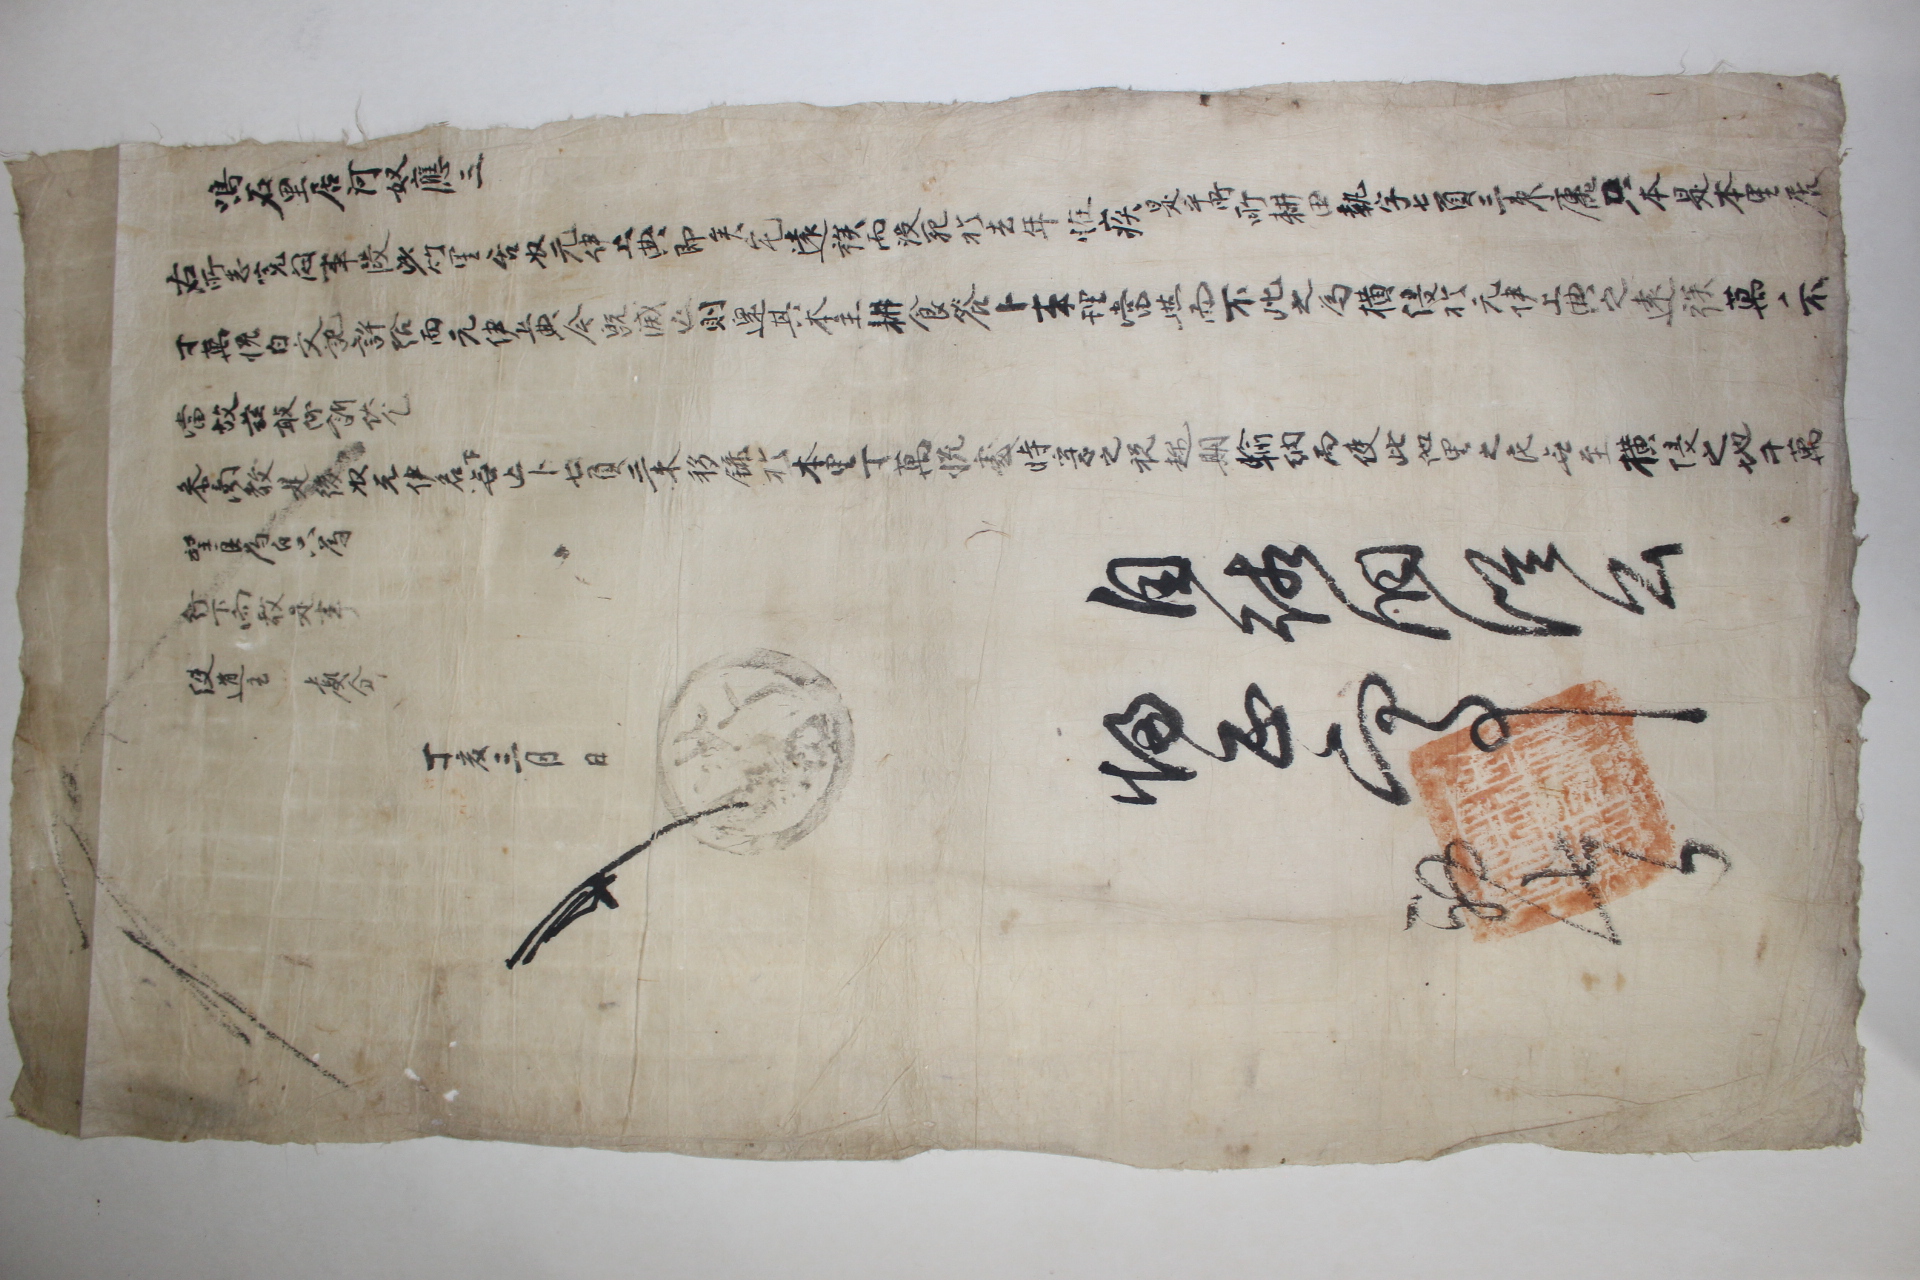 鳴石里居河奴應三
右所志寃悶事段 沙竹里居奴元伊上典卽矣宅遠族而沒死於去年 疾是乎所所耕田執字七負三束 只本是本里居
丁萬悅白文記許給而元伊上典今旣滅亡則還其本主耕食答卜事理當然而不此之爲橫侵於元伊上典之遠族萬〃不
當故玆敢仰訴伏乞
叅商敎是後奴元伊名下亡卜七負三束移錄於本里丁萬悅處時之稅趂期輸納而使此他里之民無至橫侵之地千萬
望良爲白只爲
行下向敎是事
使道主 處分
丁亥三月 日
自 洞從公
歸正事